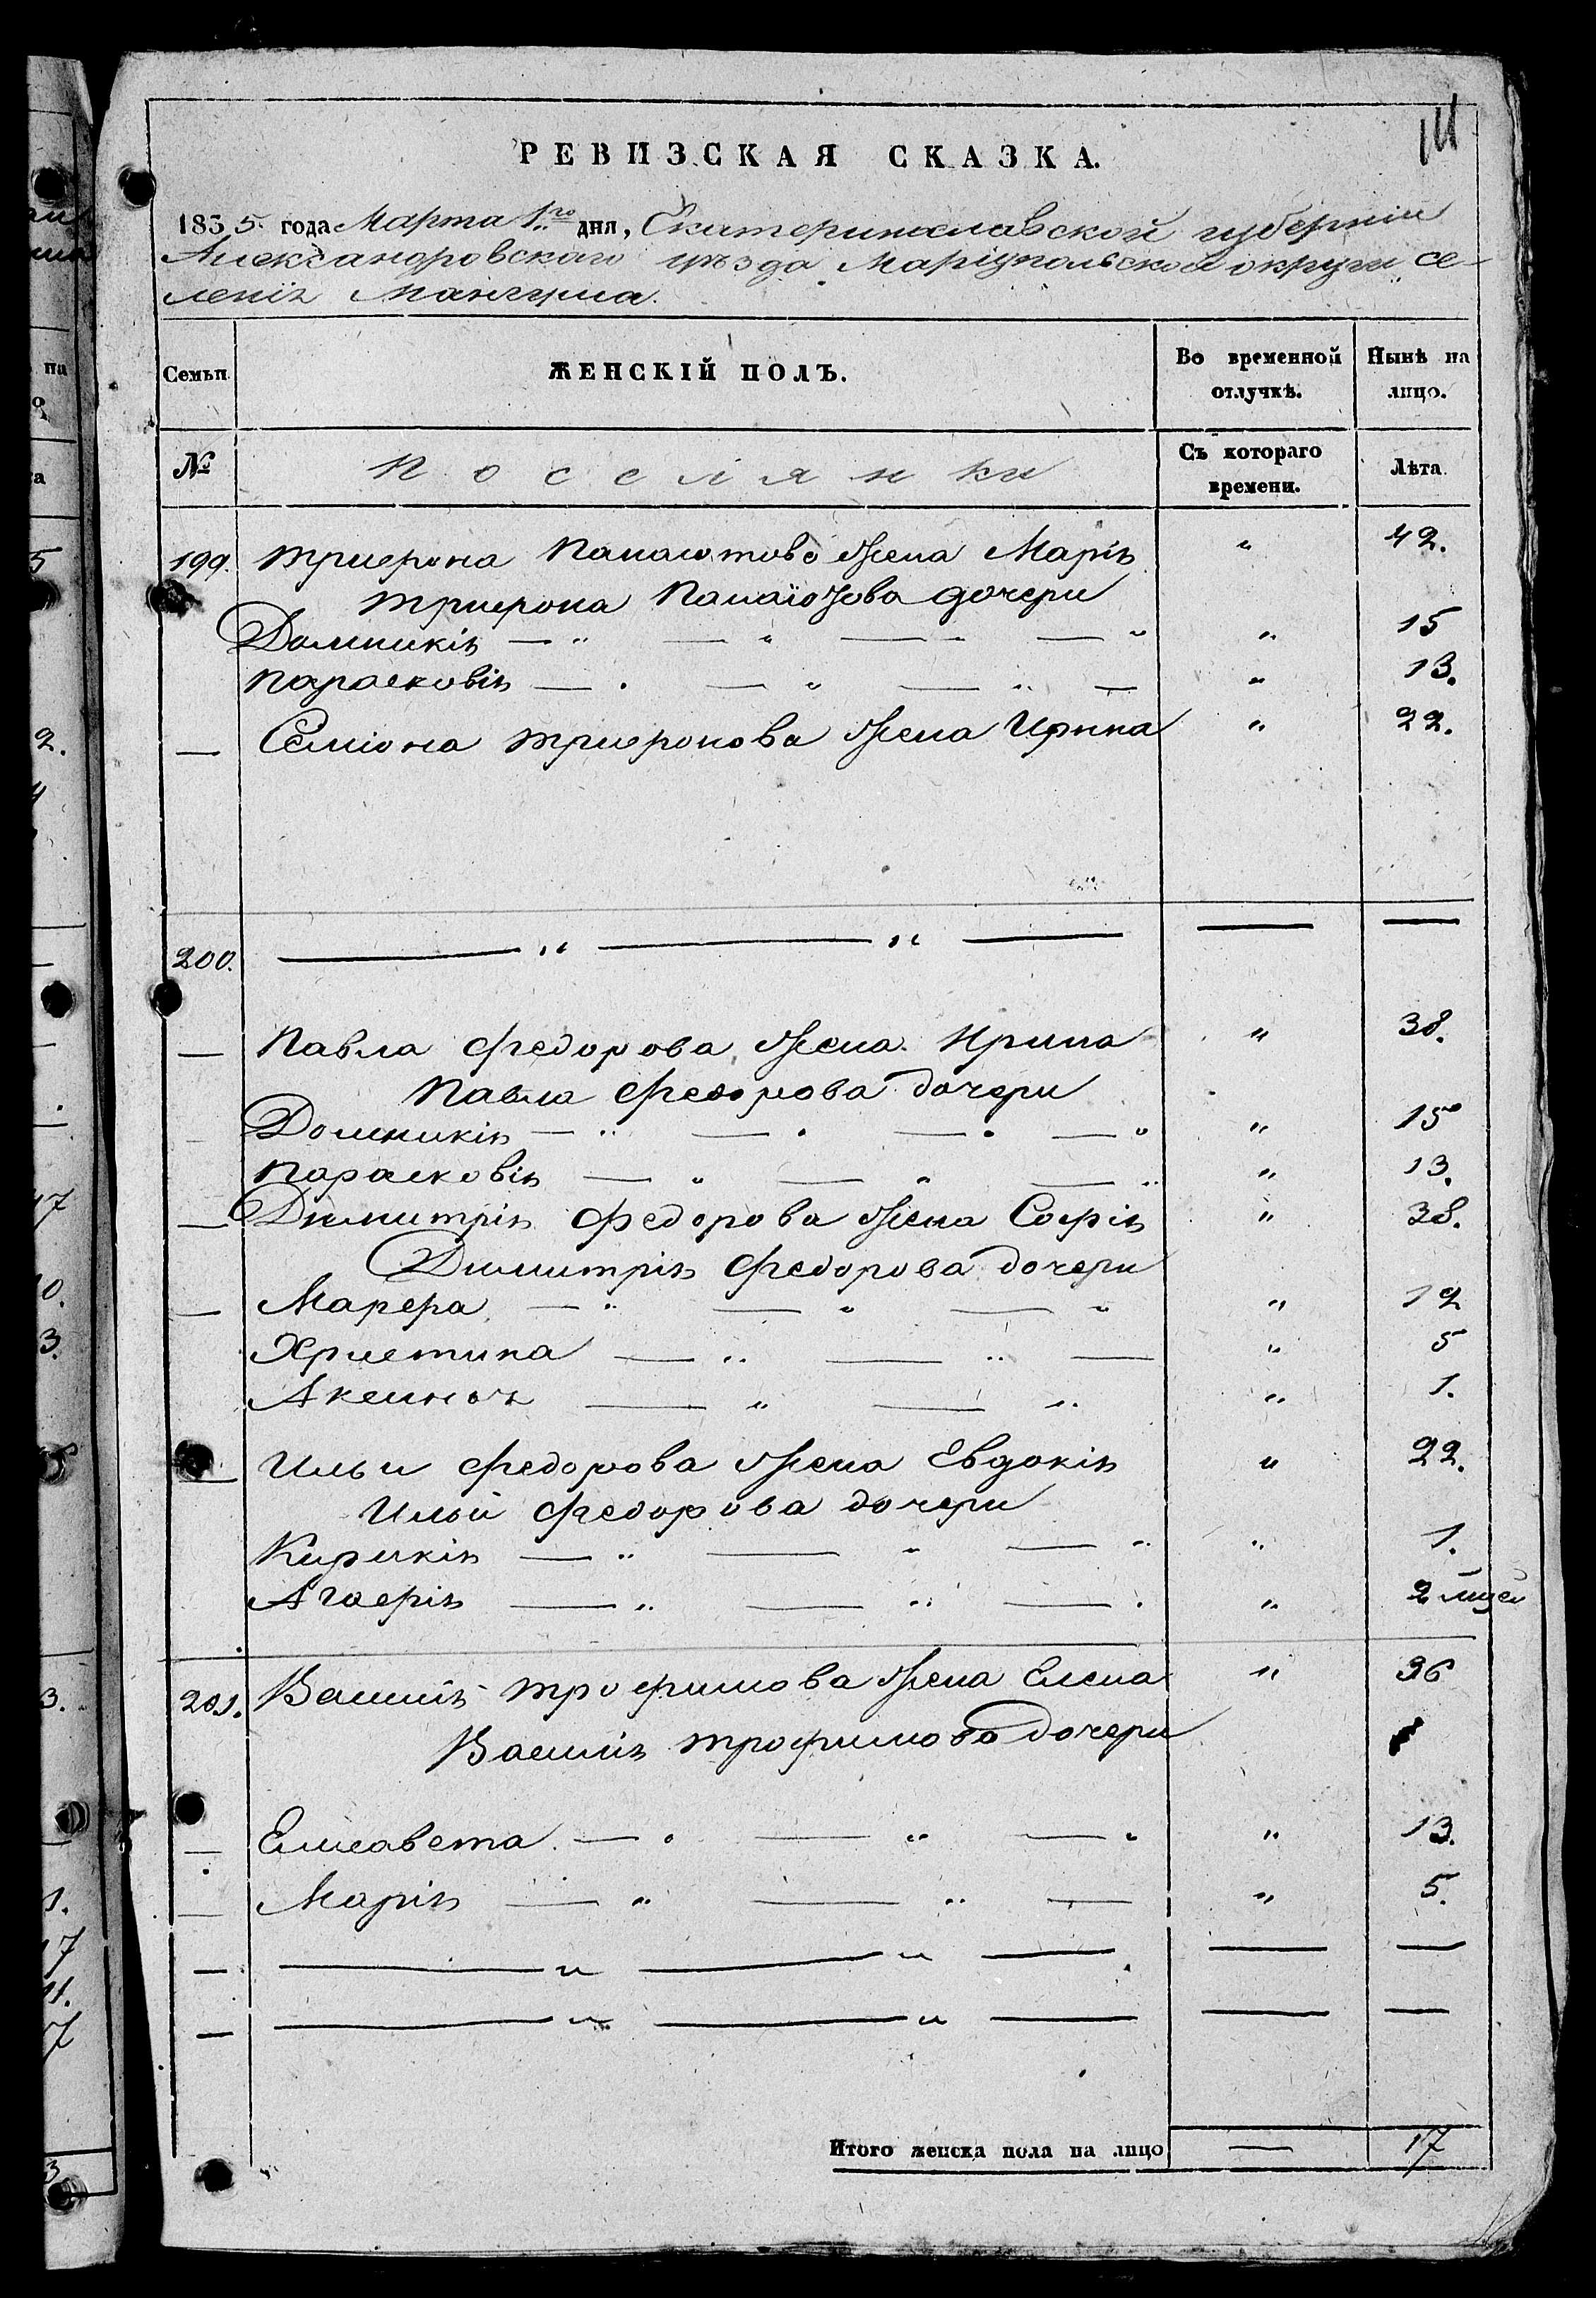 111
РЕВИЗСКАЯ СКАЗКА.
1835 года Марта 1го дня, Екатеринославской губернiи
Александровскаго уѣзда Марiупольской округи се-
ленiя Мангуша.
Семьи ЖЕНСКIЙ ПОЛЪ. Во временной отлучкѣ. Нынѣ на лицо.
№ Поселянки Съ котораго времени. Лѣта
199. Трифона Панаiотова жена Марiя " 42.
Трифона Панаiотова дочери
Домникiя — " — " — — " " 15
Парасковiя — . — " — " — " 13.
— Семiона Трифонова жена Ирина " 22.
200. — " — " — — —
— Павла Федорова жена Ирина " 38.
Павла Федорова дочери
Домникiя — " — . — . — " " 15
Парасковiя — " — " — " " 13.
— Димитрiя Федорова жена Софiя " 38.
Димитрiя Федорова дочери
— Марфра — " — " — " "
Христина — " — " — " 5
Аксинья — " — " " 1.
— Ильи Федорова жена Евдокiя " 22.
Ильи Федорова дочери
Кирикiя — " — " — " " 1.
— " — " — . " 2
201. Василiя Трофимова жена Елена " 36
Василiя Трофимова дочери
— Елисавета — " — " — " " 13.
— Марiя — " — " — " 5.
— — " — " — — —
— — " — " — — —
Итого женска пола на лицо — 17